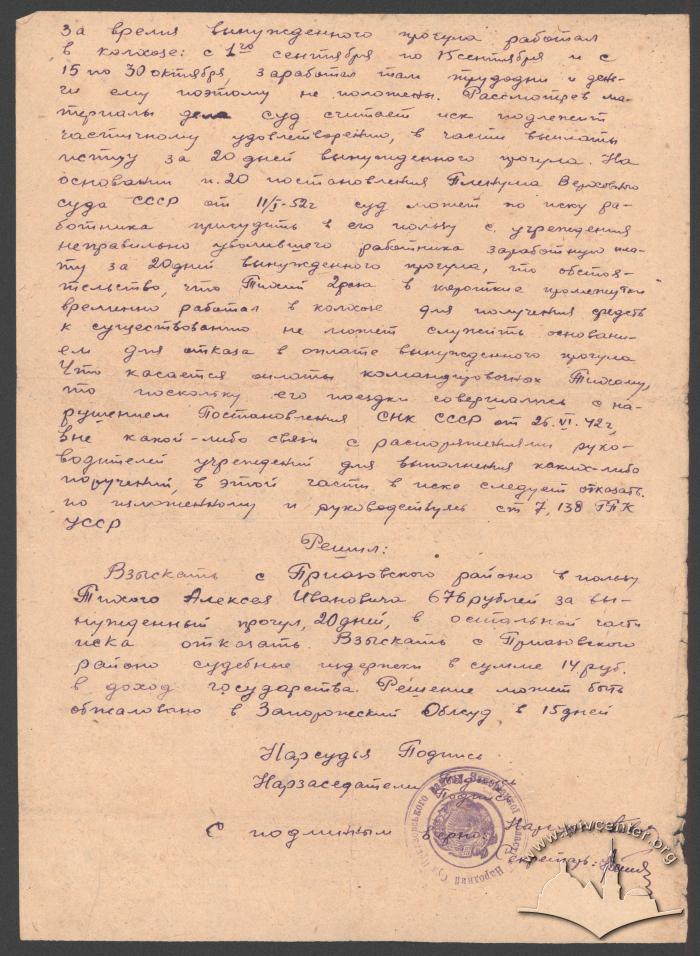 За время вынужденного прогула работал
в колхозе: с 1го сентября по 15 сентября и с
15 по 30 октября, заработал там трудодни и день-
ги ему поэтому не положены. Рассмотрев ма-
териалы дела суд считает иск подлежит
частичному удовлетворению, в части выплаты
истцу за 20 дней вынужденного прогула. На
основании п.20 постановления Пленума Верховного
суда СССР от 11/I-52г суд может по иску ра-
ботника присудить в его пользу с учреждения
неправильно уволившего работника заработную пла-
ту за 20 дней вынужденного прогула, то обстоя-
тельство, что Тихий 2 раза в короткие промежутки
временно работал в колхозе для получения средств
к существованию не может служить основани-
ем для отказа в оплате вынужденного прогула
Что касается оплаты командировочных Тихому,
то поскольку его поездки совершались с на-
рушением Постановления СНК СССР от 26.VI.42г,
вне какой-либо связи с распоряжениями руко-
водителей учреждений для выполнения каких-либо
поручений, в этой части в иске следует отказать.
по изложенному и руководствуясь ст 7, 138 ГПК
УССР
Решил:
Взыскать с Приазовского районо в пользу
Тихого Алексея Ивановича 676 рублей за вы-
нужденный прогул, 20 дней, в остальной части
иска отказать. Взыскать с Приазовского
районо судебные издержки в сумме 14 руб.
в доход государства. Решение может быть
обжаловано в Запорожский Облсуд в 15 дней
Нарсудья Подпись
Нарзаседатели Подпись
Подпись
С подлинным верно: Нарсудья
Секретарь:
Народний Суд
www.lvivcenter.org